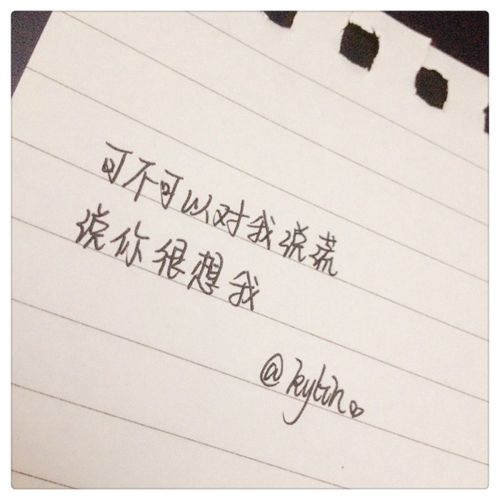 可不可以对我说谎
说你很想我
@kytin